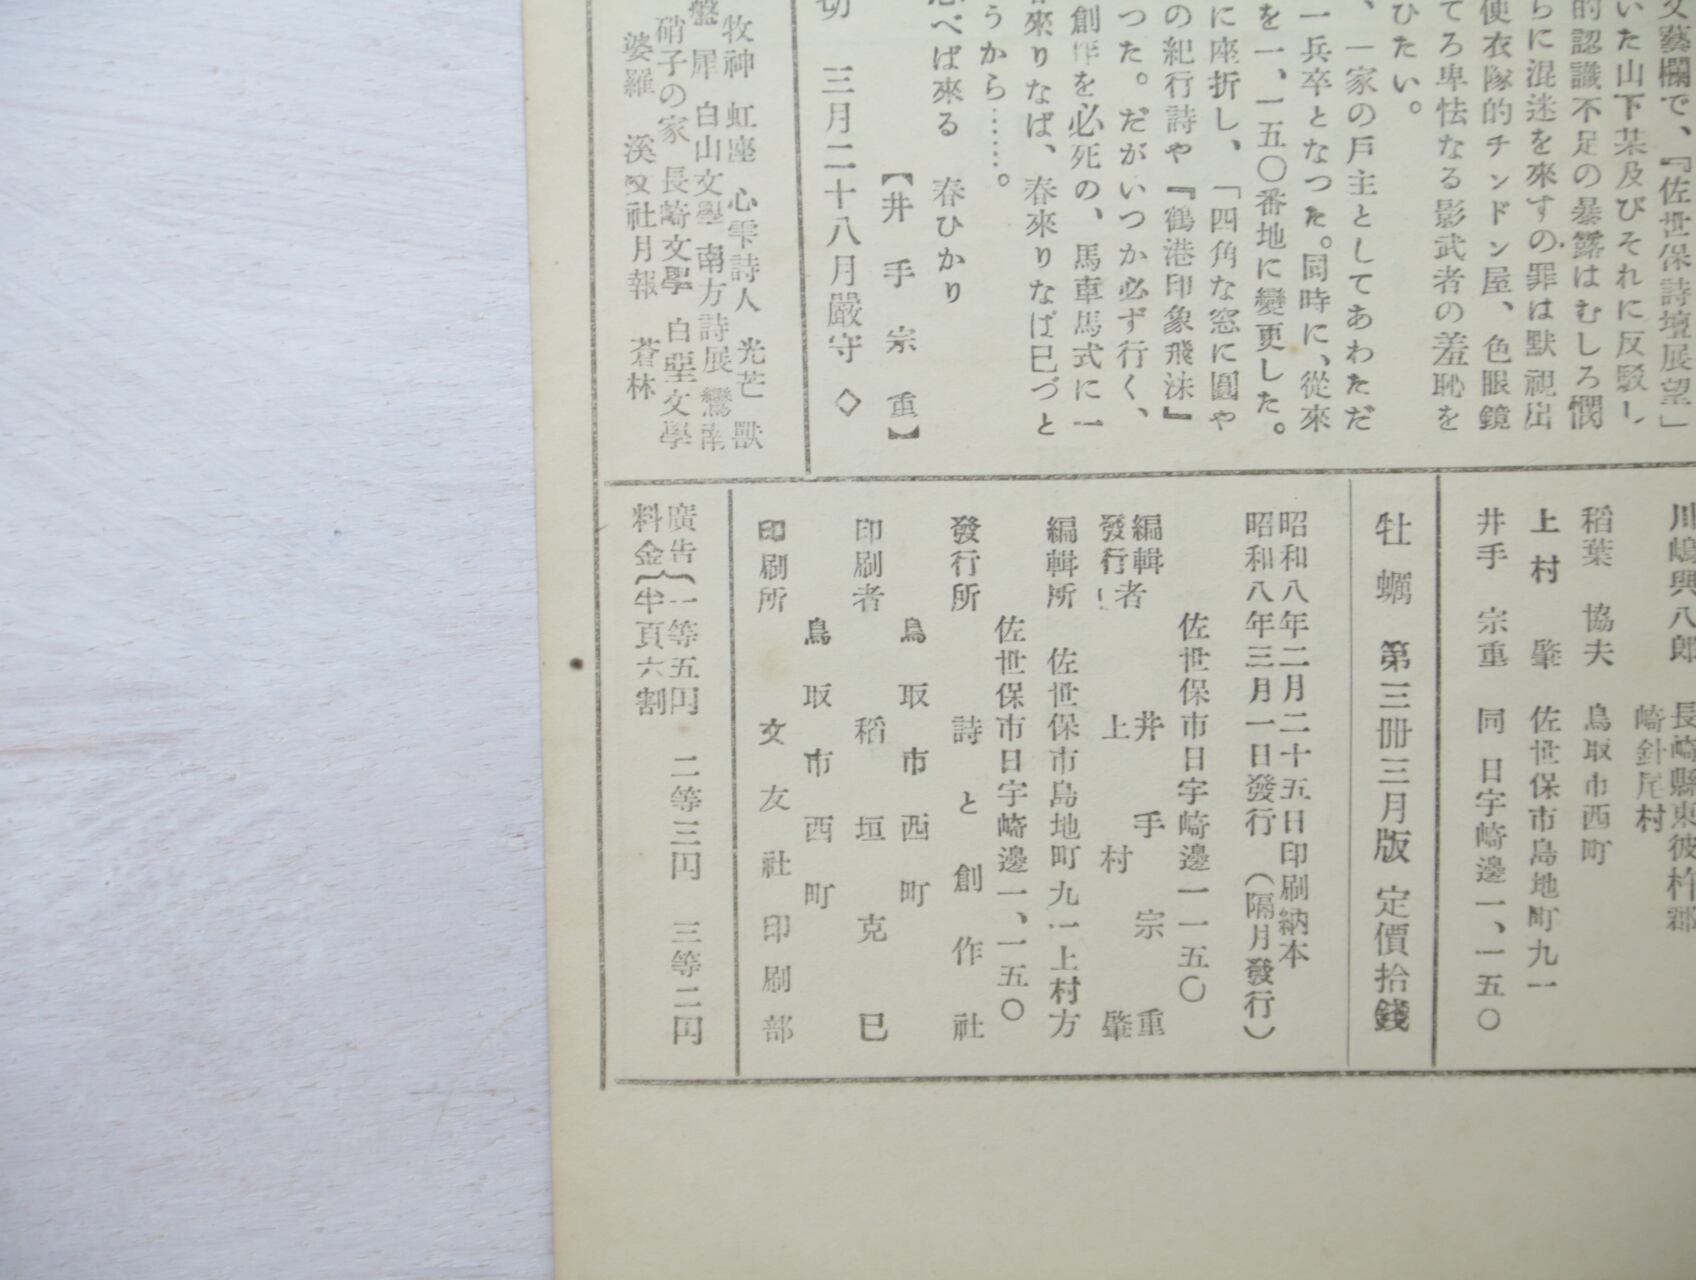 文藝欄で、『佐世保詩壇展望」
いた山下某及びそれに反駁し
的認識不足の暴露はむしろ憫
らに混迷を來すの罪は默視出
使衣隊的チンドン屋、色眼鏡
てろ卑怯なる影武者の羞恥を
ひたい。
、一家の戸主としてあわただ
一兵卒となつた。同時に、從來
を一、一五〇番地に變更した。
に座折し、「四角な窓に圓や
の紀行詩や『鶴港印象飛沫』
つた。だがいつか必ず行く、
創作を必死の、馬車馬式に一
來りなば、春來りなば巳づと
うから……。
べば來る 春ひかり
【井手宗重】
切 三月二十八月嚴守 ◇
牧神 虹座 心 雫 詩人 光芒 獸
盤 犀 白山文學 南方詩展 鸞南
硝子の家 長崎文學 白堊文學
婆羅 溪 社月報 蒼林
川嶋興八郎 長崎縣東彼杵郡
崎針尾村
稻葉 協夫 鳥取市西町
上村 肇 佐世保市島地町九一
井手 宗重 同 日宇崎邊一、一五〇
牡蠣 第三冊三月版 定價拾錢
昭和八年二月二十五日印刷納本
昭和八年三月一日發行(隔月發行)
佐世保市日宇崎邊一一五〇
編輯者 井手宗重
發行 上村肇
編輯所 佐世保市島地町九一上村方
佐世保市日宇崎邊一、一五〇
發行所 詩と創作社
鳥取市西町
印刷者 稻垣克巳
鳥取市西町
印刷所 文友社印刷部
廣告{一等五円 二等三円 三等二円
料金{半頁六割